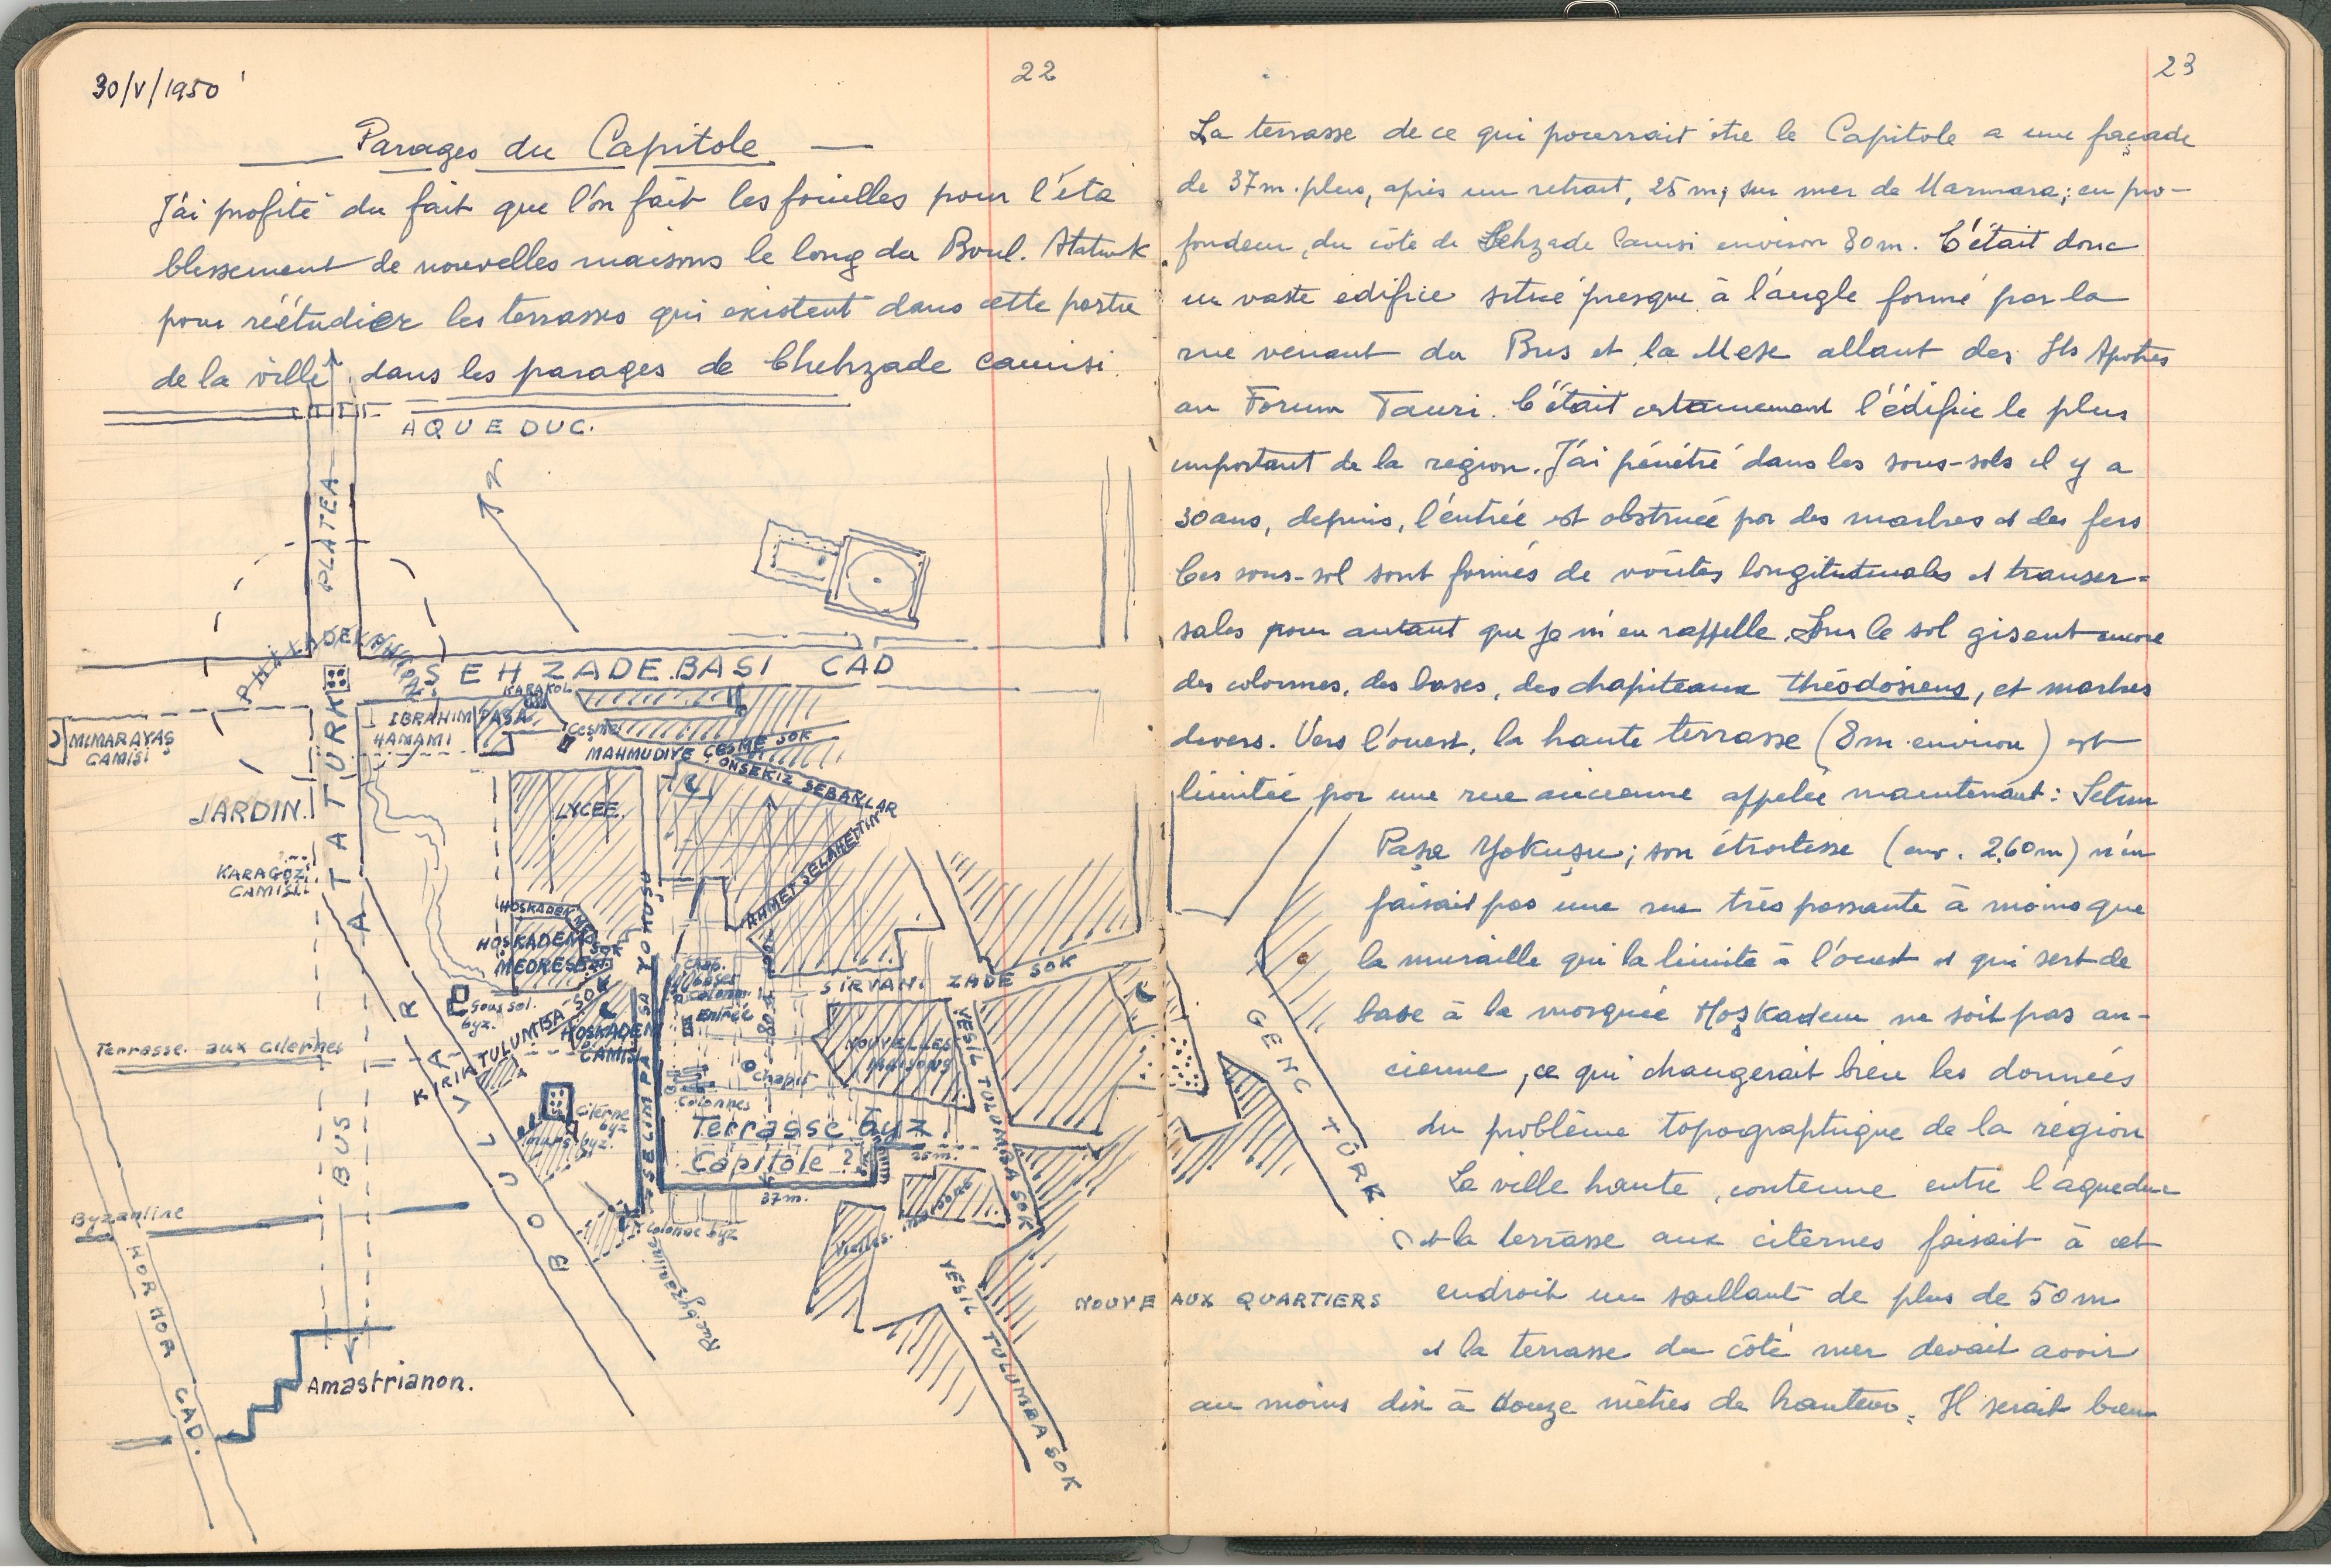 30/V/1950
22
Parages du Capitole
J'ai profité du fait que l'on fait les fouilles pour l'éta
blissement de nouvelles maisons le long du Boul. Ataturk
pour réétudier les terrasses qui existent dans cette partie
de la ville, dans les parages de Chehzade camisi.
AQUEDUC.
PLATEA
N
PHILADELPHION
SEHZADEBASI CAD
KARAKOL
IBRAHIM PAŞA
HAMAMI
Ceşme
MAHMUDIYE ÇEŞME SOK
ONSEKIZ SEBAKLAR
MIMARAYAŞ
CAMİSİ
JARDIN.
LYCEE.
ATATÜRK
KARAGÖZ
CAMİSİ.
AHMET SELAHETTIN
HOŞKADEM
SOK
HOŞKADEM
MEDRESESI
Chap.
bases
Colonn.
Entrée
80 m
SIRVANI ZADE SOK
Sous sol.
byz.
KIRIK TULUMBA SOK
HOSKADEM
CAMISI
SELIM PAŞA YOKUŞU
NOUVELLES
MAISONS
YESIL TULUMBA SOK
Terrasse aux citernes
Chapit
Colonnes
Citerne
byz
murs byz.
Terrasse byz.
25 m.
Capitole ?
37 m.
BUS
BOULVAR
Vieilles maisons
Colonne byz
Rue byzantine
Byzantine
HOR HOR CAD.
YESIL TULUMBA SOK
Amastrianon.
GENC TÜRK
NOUVEAUX QUARTIERS
23
La terrasse de ce qui pourrait être le Capitole a une façade
de 37m. plus, après un retrait, 25 m; sur mer de Marmara; en pro-
fondeur, du côté de Sehzade Camisi environ 80m. C'était donc
un vaste edifice situé presque à l'angle formé par la
rue venant du Bus et la Mese allant des Sts Apotres
au Forum Tauri. C'était certainement l'édifice le plus
important de la région. J'ai pénétré dans les sous-sols il y a
30 ans, depuis, l'entrée est obstruée par des marbres et des fers
Ces sous-sol sont formés de voûtes longitutinales et transer-
sales pour autant que je m'en rappelle. Sur le sol gisent encore
des colonnes, des bases, des chapiteaux théodosiens, et marbres
divers. Vers l'ouest, la haute terrasse (8m environ) est
limitée par une rue ancienne appelée maintenant: Selim
Paşa Yokuşu; son étroitesse (env. 2,60m) n'en
faisait pas une rue très passante à moins que
la muraille qui la limite à l'ouest et qui sert de
base à la mosquée Hoşkadem ne soit pas an-
cienne, ce qui changerait bien les données
du problème topographique de la région
La ville haute, contenue entre l'aqueduc
et la terrasse aux citernes faisait à cet
endroit un saillant de plus de 50m
et la terrasse du côté mer devait avoir
au moins dix à douze mètres de hauteur. Il serait bien